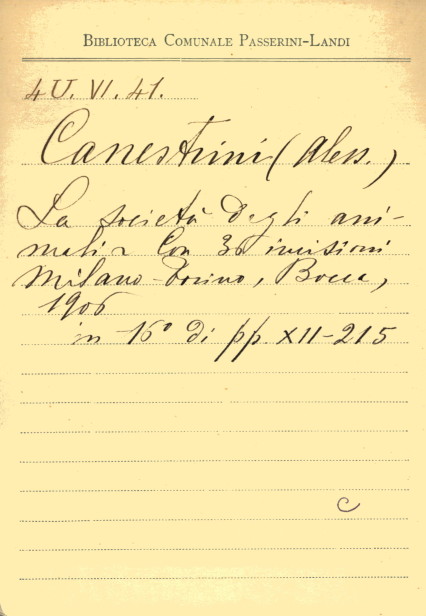 BIBLIOTECA COMUNALE PASSERINI-LANDI
4U. VI. 41.
Canestrini (Aless.)
La società degli ani-
mali Con 30 incisioni
Milano Torino, Bocca,
1906
in 16° di pp. XII-215
C